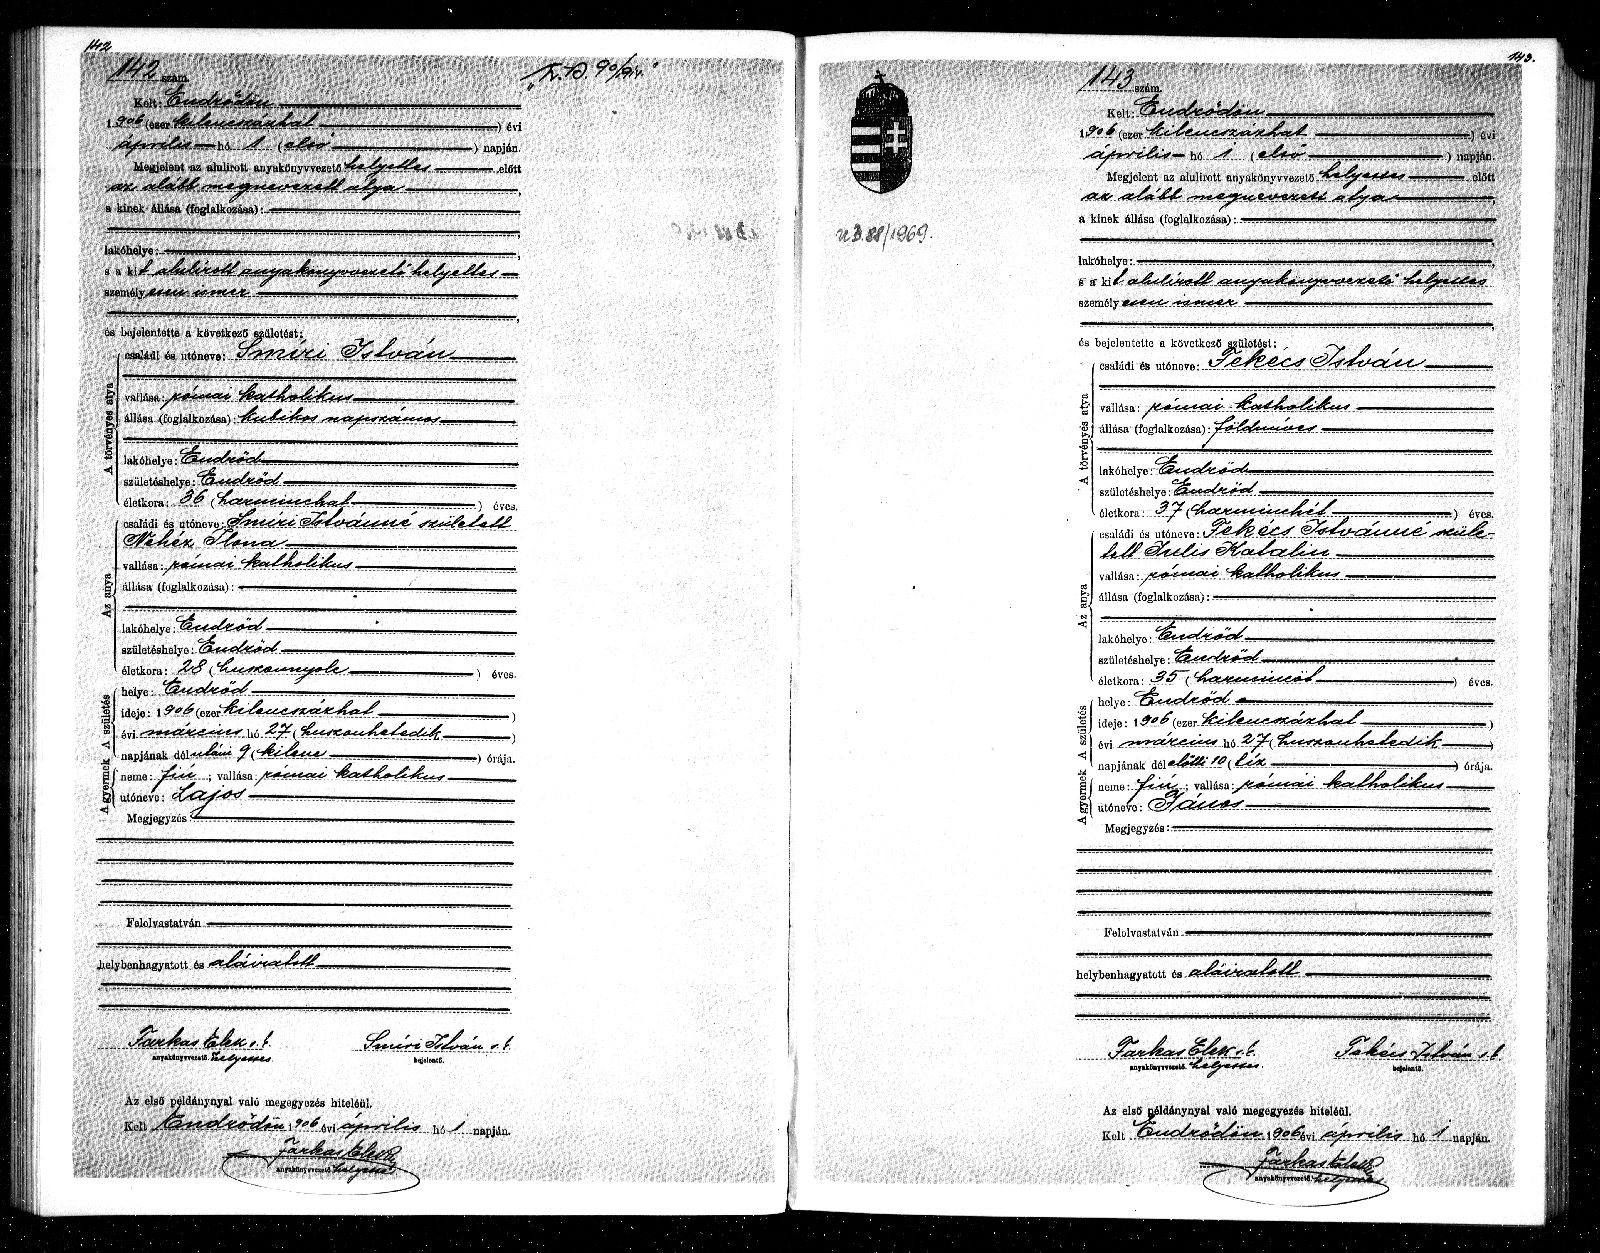 142
142 szám.
Kelt: Endrődön
1906 (ezer kilenczázhat) évi
április hó 1 (első) napján.
Megjelent az alulirott anyakönyvvezető helyettes előtt
az alább megnevezett atya,
a kinek állása (foglalkozása):
lakóhelye:
s a kit alulirott anyakönyvvezető helyettes
személyesen ismer
és bejelentette a következő születést:
A törvényes atya
családi és utóneve: Smiri István
vallása: római katholikus
állása (foglalkozása): kubikos napszámos
lakóhelye: Endrőd
születéshelye: Endrőd
életkora: 36 (harminchat) éves.
Az anya
családi és utóneve: Smiri Istvánné született
Nehéz Ilona
vallása: római katholikus
állása (foglalkozása):
lakóhelye: Endrőd
születéshelye: Endrőd
életkora: 28 (huszonnyolc) éves.
A születés
helye: Endrőd
ideje: 1906 (ezer kilenczázhat)
évi márczius hó 27 (huszonhetedik)
napjának dél utáni 9 (kilenc) órája.
A gyermek
neme: fiú; vallása: római katholikus
utóneve: Lajos
Megjegyzés:
Felolvastatván
helybenhagyatott és aláiratott
Farkas Elek s. k. Smiri István s. k.
anyakönyvvezető. helyettes bejelentő.
Az első példánynyal való megegyezés hiteléül.
Kelt Endrődön 1906 évi április hó 1 napján.
Farkas Elek
anyakönyvvezető helyettes
143.
88/1969.
143 szám.
Kelt: Endrődön
1906 (ezer kilenczázhat) évi
április hó 1 (első) napján.
Megjelent az alulirott anyakönyvvezető helyettes előtt
az alább megnevezett atya,
a kinek állása (foglalkozása):
lakóhelye:
s a kit alulirott anyakönyvvezető helyettes
személyesen ismer
és bejelentette a következő születést:
A törvényes atya
családi és utóneve: Fekécs István
vallása: római katholikus
állása (foglalkozása): földmives
lakóhelye: Endrőd
születéshelye: Endrőd
életkora: 37 (harminchét) éves.
Az anya
családi és utóneve: Fekécs Istvánné szüle-
tett Iulis Katalin
vallása: római katholikus
állása (foglalkozása):
lakóhelye: Endrőd
születéshelye: Endrőd
életkora: 35 (harmincöt) éves.
A születés
helye: Endrőd
ideje: 1906 (ezer kilenczázhat)
évi márczius hó 27 (huszonhetedik)
napjának dél előtti 10 (tíz) órája.
A gyermek
neme: fiú; vallása: római katholikus
utóneve: János
Megjegyzés:
Felolvastatván
helybenhagyatott és aláiratott
Farkas Elek s. k. Fekécs István s. k.
anyakönyvvezető. helyettes. bejelentő.
Az első példánynyal való megegyezés hiteléül.
Kelt Endrődön 1906 évi április hó 1 napján.
Farkas Elek
anyakönyvvezető. helyettes